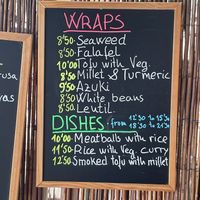 WRAPS
8'50. Seaweed
8'50. Falafel
10'00 Tofu with Veg.
8'50. Millet & Turmeric
9'50 Azuki
8'50 White beans
8'50. Lentil.
DISHES: from 12'30 to 15'30
18'30 to 21'30
10'00 Meatballs with rice
11'50 Rice with veg. curry
12'50 Smoked tofu with millet